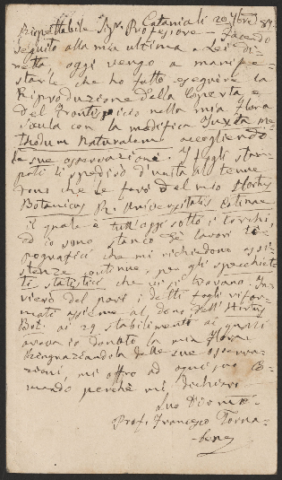 Catania li 20 9bre 89.
Rispettabile Sig. Professore – Facendo
seguito alla mia ultima a Lei di-
retta oggi vengo a manife-
starle che ho fatto eseguire la
Riproduzione della Coperta e
del Frontespizio nella mia Flora
Sicula con la modifica Juxta me-
thodum Naturalem accogliendo
le sue osservazioni. I fogli stam-
pati li spedirò d'unita al tenue
dono che le farò del mio Hortus
Botanicus R. Universitatis Catinae
il quale è tutt'oggi sotto i torchi,
ed io sono stanco de' lavori ti-
pografici che mi richiedono assi-
stenza continua, per gli specchietti
statistici che vi si trovano. In-
vierò del pari i detti fogli rifor-
mati assieme al dono dell'Hortus
Bot. ai 29 stabilimenti ai quali
aveva io donato la mia Flora
Ringraziandola delle sue osserva-
zioni, mi offro ad ogni suo co-
mando perchè mi dichiaro
Suo Dev.mo
Prof. Francesco Torna-
bene